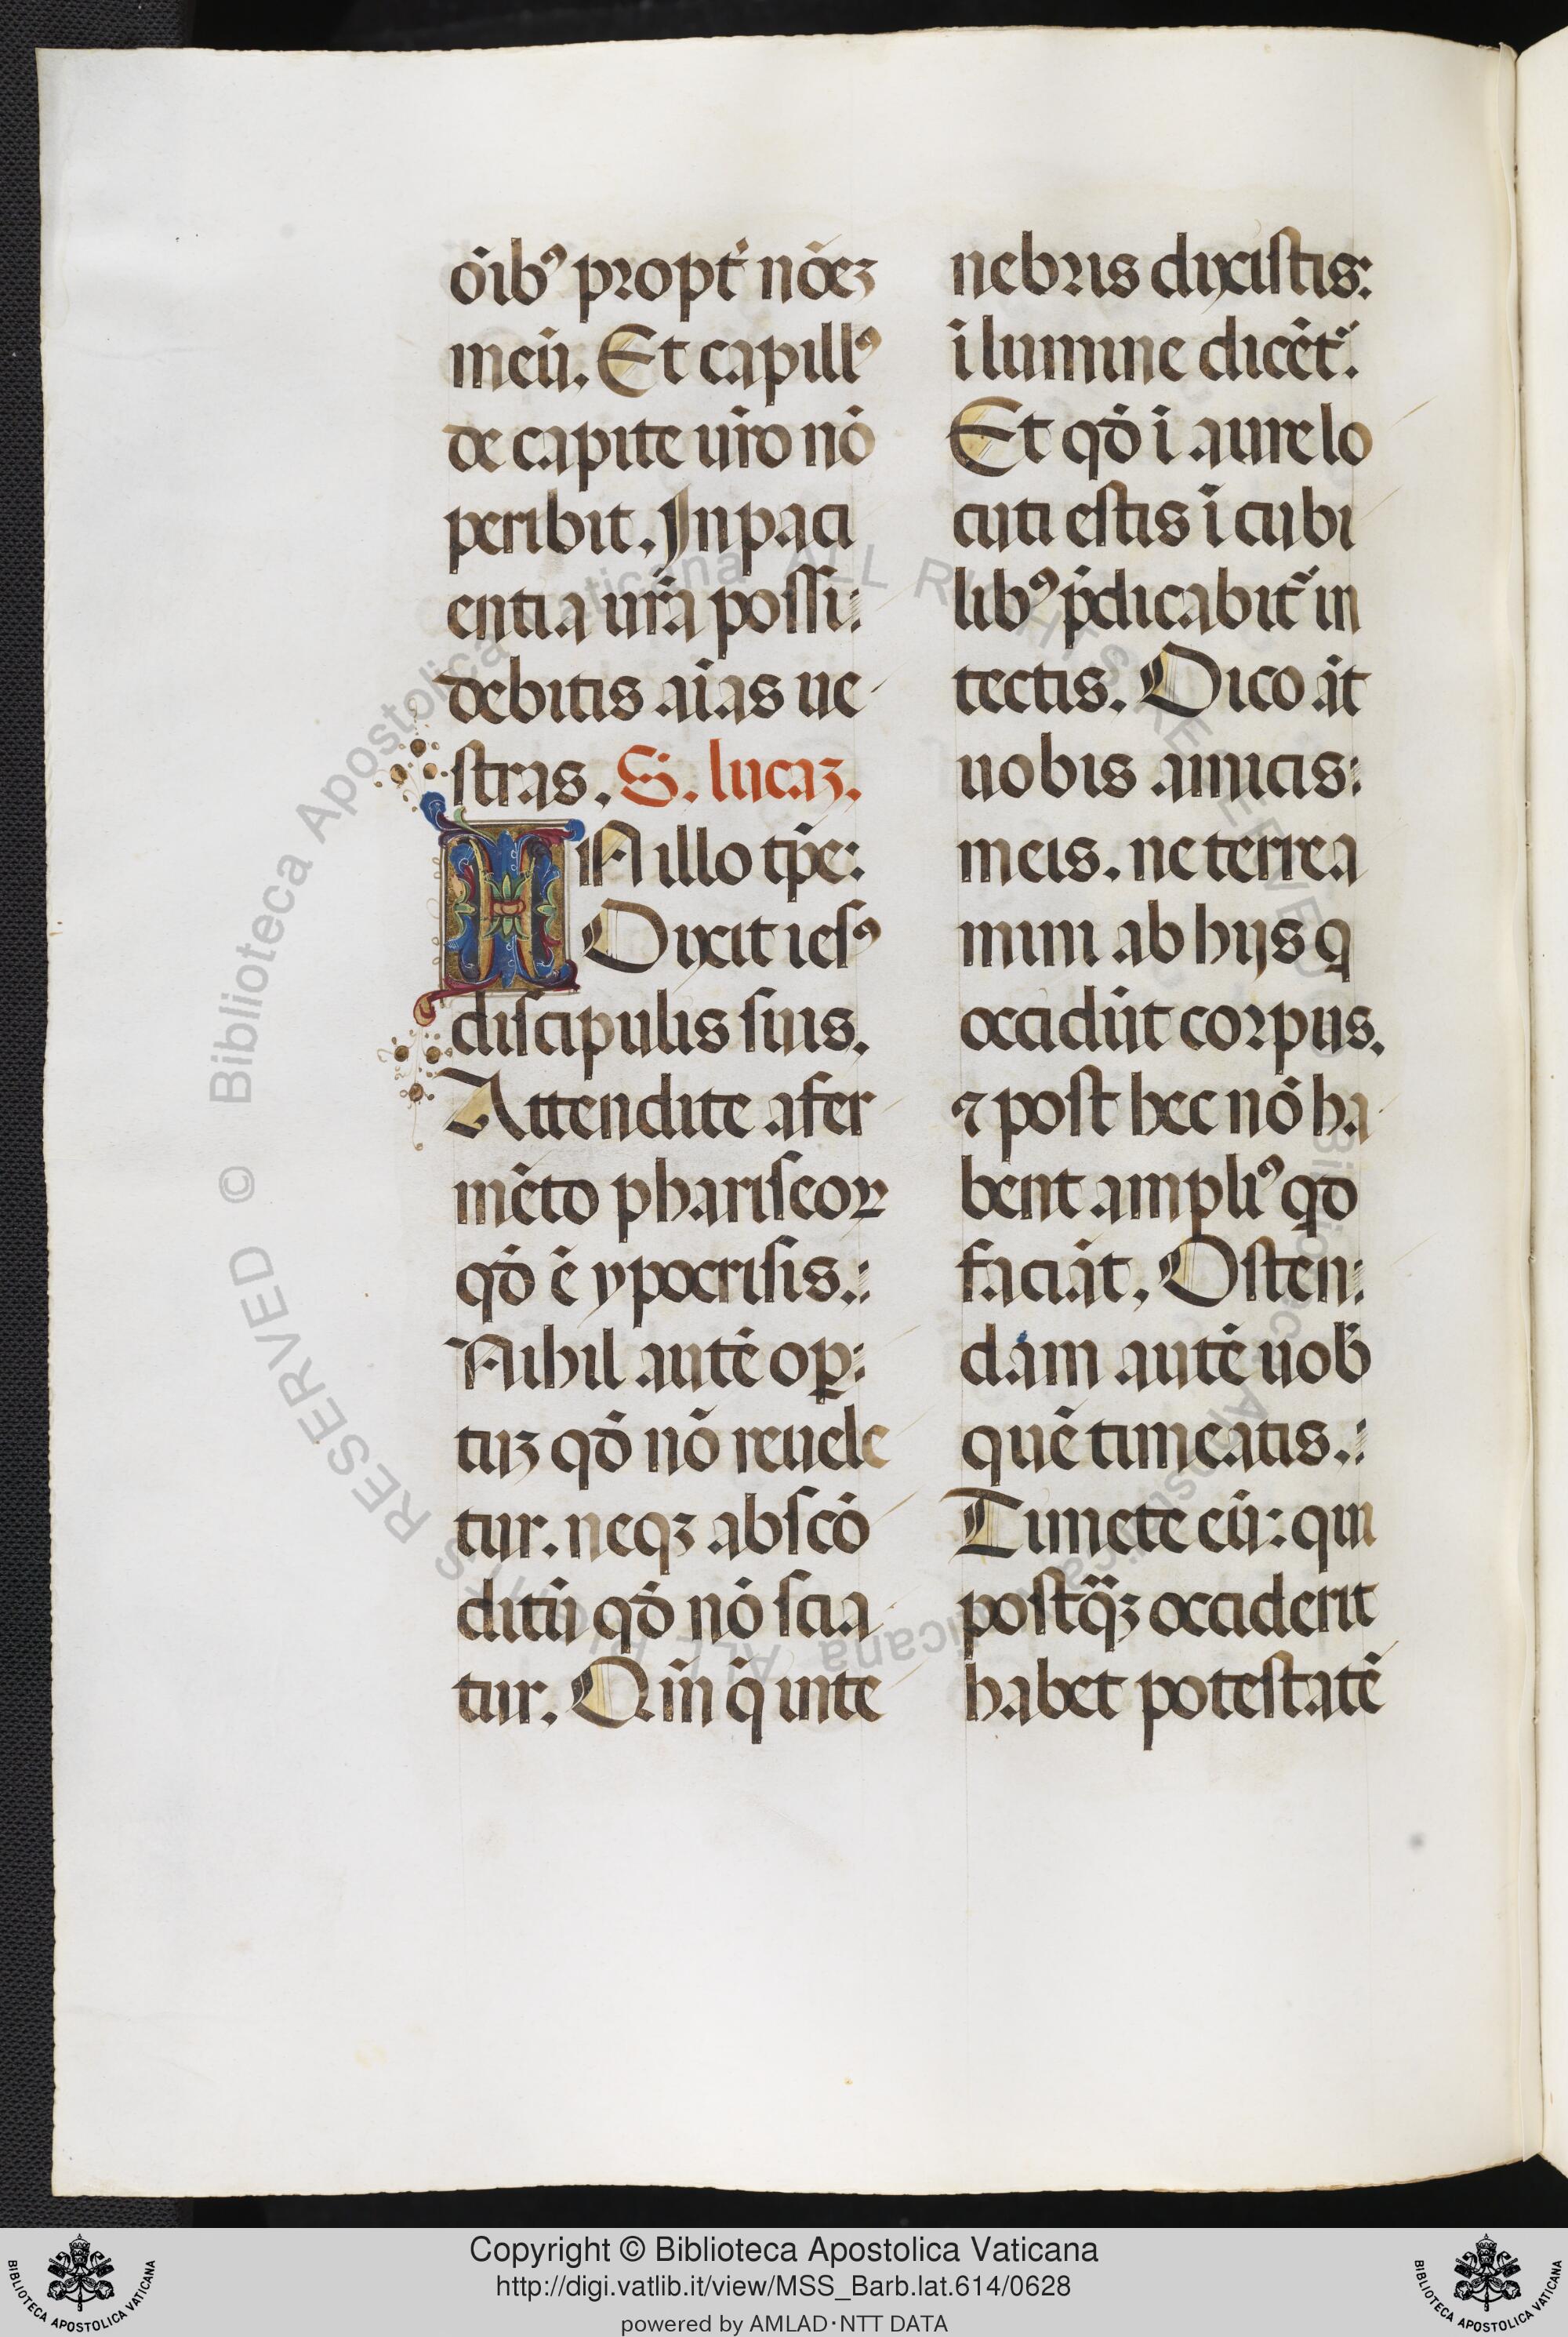 oı̄bꝰ propt̛ nōeꝫ
meū. Et capillꝰ
de capite ur̄o nō
peribit. In paci
entia ur̄a possi:
debitis aı̄as ue
stras. S. lucaꝫ.
IN illo tp̄e:
Dixit iesꝰ
discipulis suis.
Attendite a fer
mēto phariseoꝝ
qđ ē ypocrisis.:
Nihil autē oꝑ:
tuꝫ qđ nō reuele
tur. neqꝫ abscō
ditū qđ nō scia
tur. Qm̄ q̄ in te
nebris dixistis:
ī lumine dicēt᷑.
Et qđ ī aure lo
cuti estis ī cubi
libꝰ p̄dicabit᷑ in
tectis. Dico āt
uobis amicis:
meis. ne terrea
mini ab hijs q
occidūt corpus.
⁊ post hec nō ha
bent ampliꝰ qđ
faciāt. Osten:
dam autē uob̄
quē timeatis.:
Timete eū: qui
postq̄ꝫ occiderit
habet potestatē
© Biblioteca Apostolica Vaticana ALL RIGHTS RESERVED
© Biblioteca Apostolica Vaticana ALL RIGHTS RESERVED
Copyright © Biblioteca Apostolica Vaticana
http://digi.vatlib.it/view/MSS_Barb.lat.614/0628
powered by AMLAD·NTT DATA
BIBLIOTECA APOSTOLICA VATICANA
BIBLIOTECA APOSTOLICA VATICANA